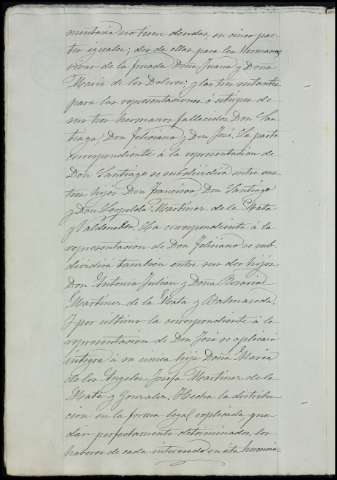 mentaria no tienen deudas, en cinco par-
tes iguales; dos de ellas para las hermanas
vivas de la finada Doña Juana y Doña
María de los Dolores: y las tres restantes
para las representaciones ó estirpes de
sus tres hermanos fallecidos Don San-
tiago, Don Feliciano y Don José. La parte
correspondiente á la representacion de
Don Santiago se subdividirá entre sus
tres hijos Don Francisco, Don Santiago
y Don Leopoldo Martinez de la Mata
y . La correspondiente á la
representacion de Don Feliciano se sub-
dividirá tambien entre sus dos hijos
Don Antonio Julian y Doña Rosario
Martinez de la Mata y .
Y por ultimo la correspondiente á la
representacion de Don José se aplicará
íntegra á su unica hija Doña María
de los Angeles Josefa Martinez de la
Mata y Gonzalez. Hecha la distribu-
cion en la forma legal explicada que-
dan perfectamente determinados los
haberes de cada interesado en esta herencia